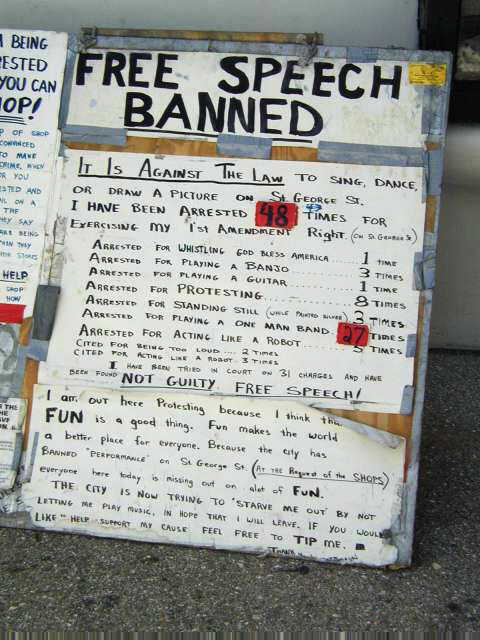 BEING
RESTED
YOU CAN
HOP!
P OF SHOP
CONVINCED
TO MAKE
CRIME, WHEN
OR YOU
STED AND
IL ON A
THE
HEY SAY
ARE BEING
THEY
STORES
HELP
SHOP
NOW
FREE SPEECH
BANNED
IT IS AGAINST THE LAW TO SING, DANCE,
OR DRAW A PICTURE ON ST. GEORGE ST.
I HAVE BEEN ARRESTED 48 TIMES FOR
EXERCISING MY 1ST AMENDMENT RIGHT. (ON ST. GEORGE ST)
ARRESTED FOR WHISTLING GOD BLESS AMERICA......1 TIME
ARRESTED FOR PLAYING A BANJO..........3 TIMES
ARRESTED FOR PLAYING A GUITAR.........1 TIME
ARRESTED FOR PROTESTING...........8 TIMES
ARRESTED FOR STANDING STILL (WHILE PAINTED SILVER) 3 TIMES
ARRESTED FOR PLAYING A ONE MAN BAND. 27 TIMES
ARRESTED FOR ACTING LIKE A ROBOT........5 TIMES
CITED FOR BEING TOO LOUD .... 2 TIMES
CITED FOR ACTING LIKE A ROBOT. 3 TIMES
I HAVE BEEN TRIED IN COURT ON 31 CHARGES AND HAVE
BEEN FOUND NOT GUILTY, FREE SPEECH!
I am out here Protesting because I think tha
FUN is a good thing. Fun makes the world
a better place for everyone. Because the city has
BANNED "PERFORMANCE" on St. George St. (AT THE REQUEST of the SHOPS)
everyone here today is missing out on alot of FUN.
THE CITY IS NOW TRYING TO "STARVE ME OUT" BY NOT
LETTING ME PLAY MUSIC, IN HOPE THAT I WILL LEAVE. IF YOU WOULD
LIKE TO HELP SUPPORT MY CAUSE FEEL FREE TO TIP ME.
THANK